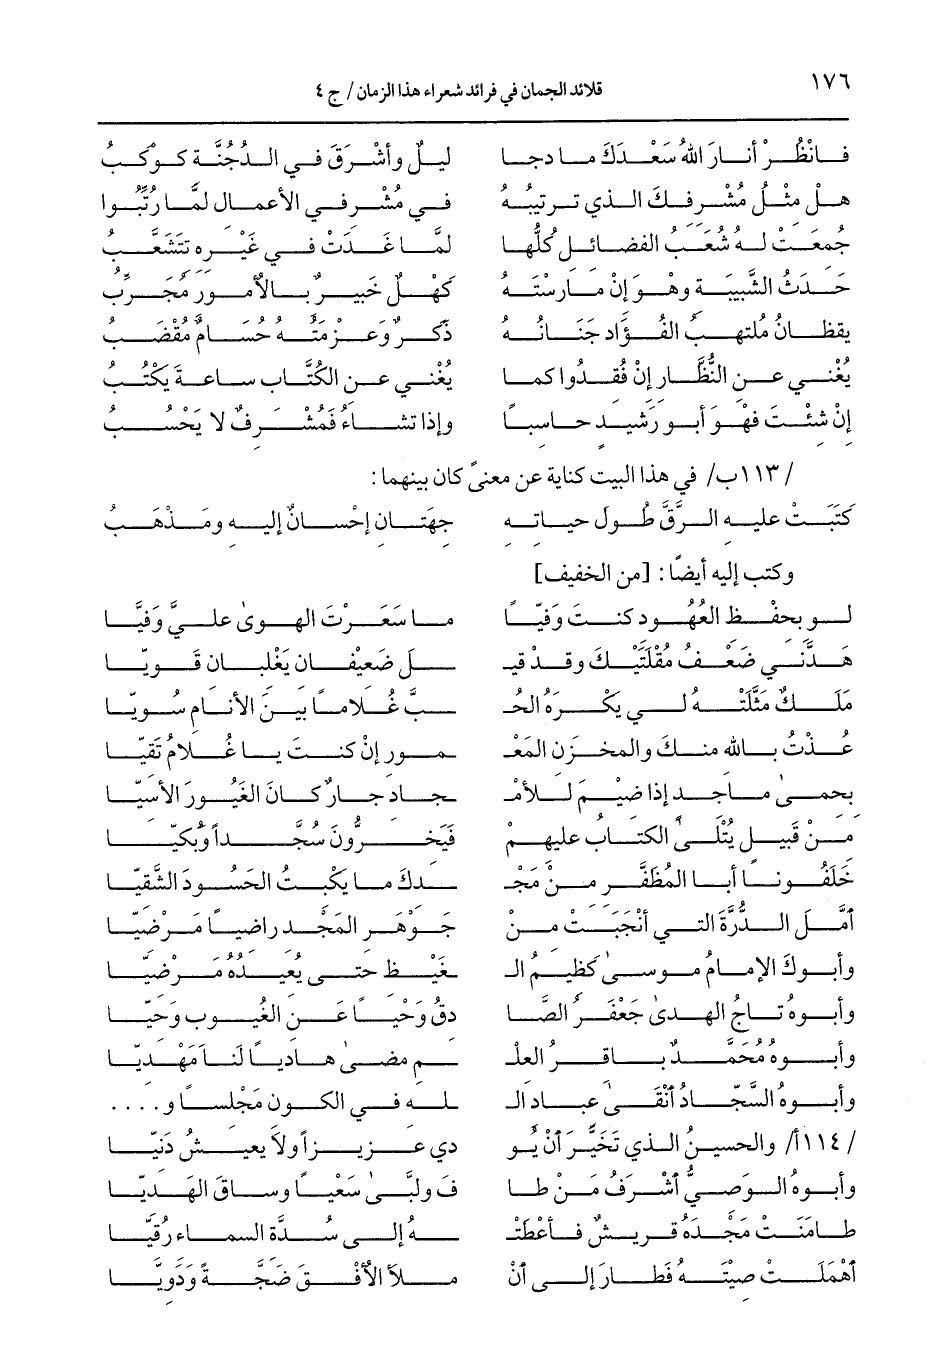 ١٧٦
قلائد الجمان في فرائد شعراء هذا الزمان / ج ٤
فَانْظُرْ أَنارَ اللهُ سَعْدَكَ ما دجا ليلٌ وأشرقَ في الدُّجُنَّةِ كوكبُ
هلْ مثْلُ مُشْرفكَ الذي ترتيبُهُ في مُشْرفي الأعمالِ لمَّا رُتِّبُوا
جمعتْ له شُعَبُ الفضائلِ كُلُّها لمَّا غَدَتْ في غَيرهِ تَتَشَعَّبُ
حَدثُ الشَّبيبةِ وهْوَ إنْ مارستَهُ كهْلٌ خَبيرٌ بالأمورِ مُجَرِّبُ
يقظانُ مُلتهبُ الفُؤادِ جَنَانُهُ ذَكرٌ وعزمتُهُ حسامٌ مُقْضَبُ
يُغْني عنِ النُّظَّارِ إنْ فُقدُوا كما يُغْني عنِ الكُتَّابِ ساعةَ يَكْتُبُ
إنْ شئْتَ فهْوَ أبو رَشيدٍ حاسبًا وإذا تشاءُ فَمُشْرفٌ لا يَحْسُبُ
/١١٣ب/ في هذا البيت كناية عن معنىً كان بينهما :
كَتَبَتْ عليهِ الرِّقَّ طُولَ حياتهِ جهَتانِ إحْسانٌ إليهِ ومَذْهَبُ
وكتب إليه أيضًا : [من الخفيف]
لو بحفْظِ العُهُودِ كنتَ وَفيّا ما سَعَّرْتَ الهوىٰ عليَّ وَفيَّا
هَدَّني ضَعْفُ مُقْلَتَيْكَ وقدْ قيـ ـلَ ضَعيفانِ يَغْلبانِ قَويّا
مَلَكٌ مَثَّلَتْهُ لي يكْرَهُ الحُـ ـبَّ غُلامًا بينَ الأنامِ سَويّا
عُذْتُ باللهِ منكَ والمخزنِ المَعْـ ـمورِ إنْ كنتَ يا غُلامُ تَقيّا
بحمىٰ ماجدٍ إذا ضيمَ للأمْـ ـجادِ جارٌ كانَ الغَيُورَ الأَبيّا
منْ قَبيلٍ يُتْلىٰ الكتابُ عليهمْ فَيَخرُّونَ سُجَّدًا وَبُكيّا
خَلَفُونا أبا المُظَفَّرِ منْ مَجْـ ـدكَ ما يَكْبتُ الحَسُودَ الشَّقيّا
أمِّلِ الدُّرَّةَ التي أنْجَبَتْ منْ جَوْهَرِ المَجْدِ راضيًا مَرْضيّا
وأبوكَ الإمامُ موسىٰ كَظيمُ الـ ـغَيْظِ حتى يُعيدُهُ مَرْضيّا
وأبوهُ تاجُ الهدىٰ جَعْفَرُ الصَّا دقُ وَحْيًا عَنِ الغُيُوبِ وَحيّا
وأبوهُ مُحَمَّدٌ باقرُ العلْـ ـمِ مضىٰ هاديًا لَنَا مَهْديّا
وأبوهُ السَّجَّادُ أتْقىٰ عبادِ الـ ـلهِ في الكونِ مَجْلسًا و....
/١١٤أ/ والحسينُ الذي تَخَيَّرَ أنْ يُو دي عزيزًا ولا يعيشُ دَنيّا
وأبوهُ الوَصيُّ أشْرَفُ مَنْ طا فَ ولبّىٰ سَعْيًا وساقَ الهَديّا
طامَنَتْ مَجْدَهُ قريشٌ فأعطتْـ ـهُ إلى سُدَّةِ السماءِ رُقيّا
أهْمَلتْ صيتَهُ فطارَ إلى أنْ ملأَ الأُفْقَ ضَجَّةً وَدَويَّا